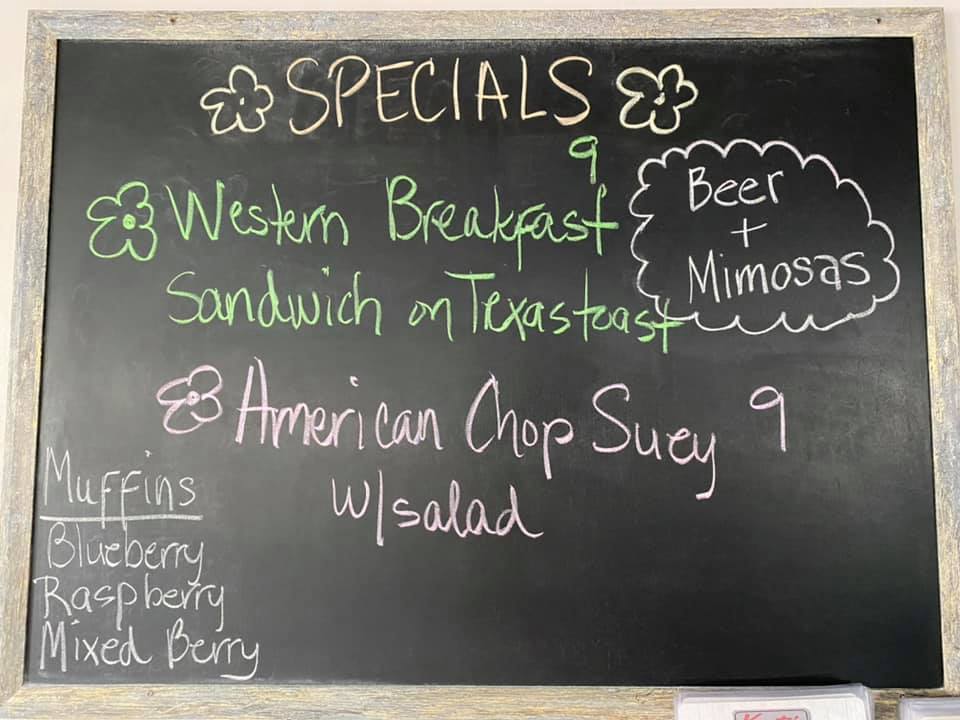 SPECIALS
9
Western Breakfast
Sandwich on Texas toast
Beer
+
Mimosas
American Chop Suey 9
w/salad
Muffins
Blueberry
Raspberry
Mixed Berry